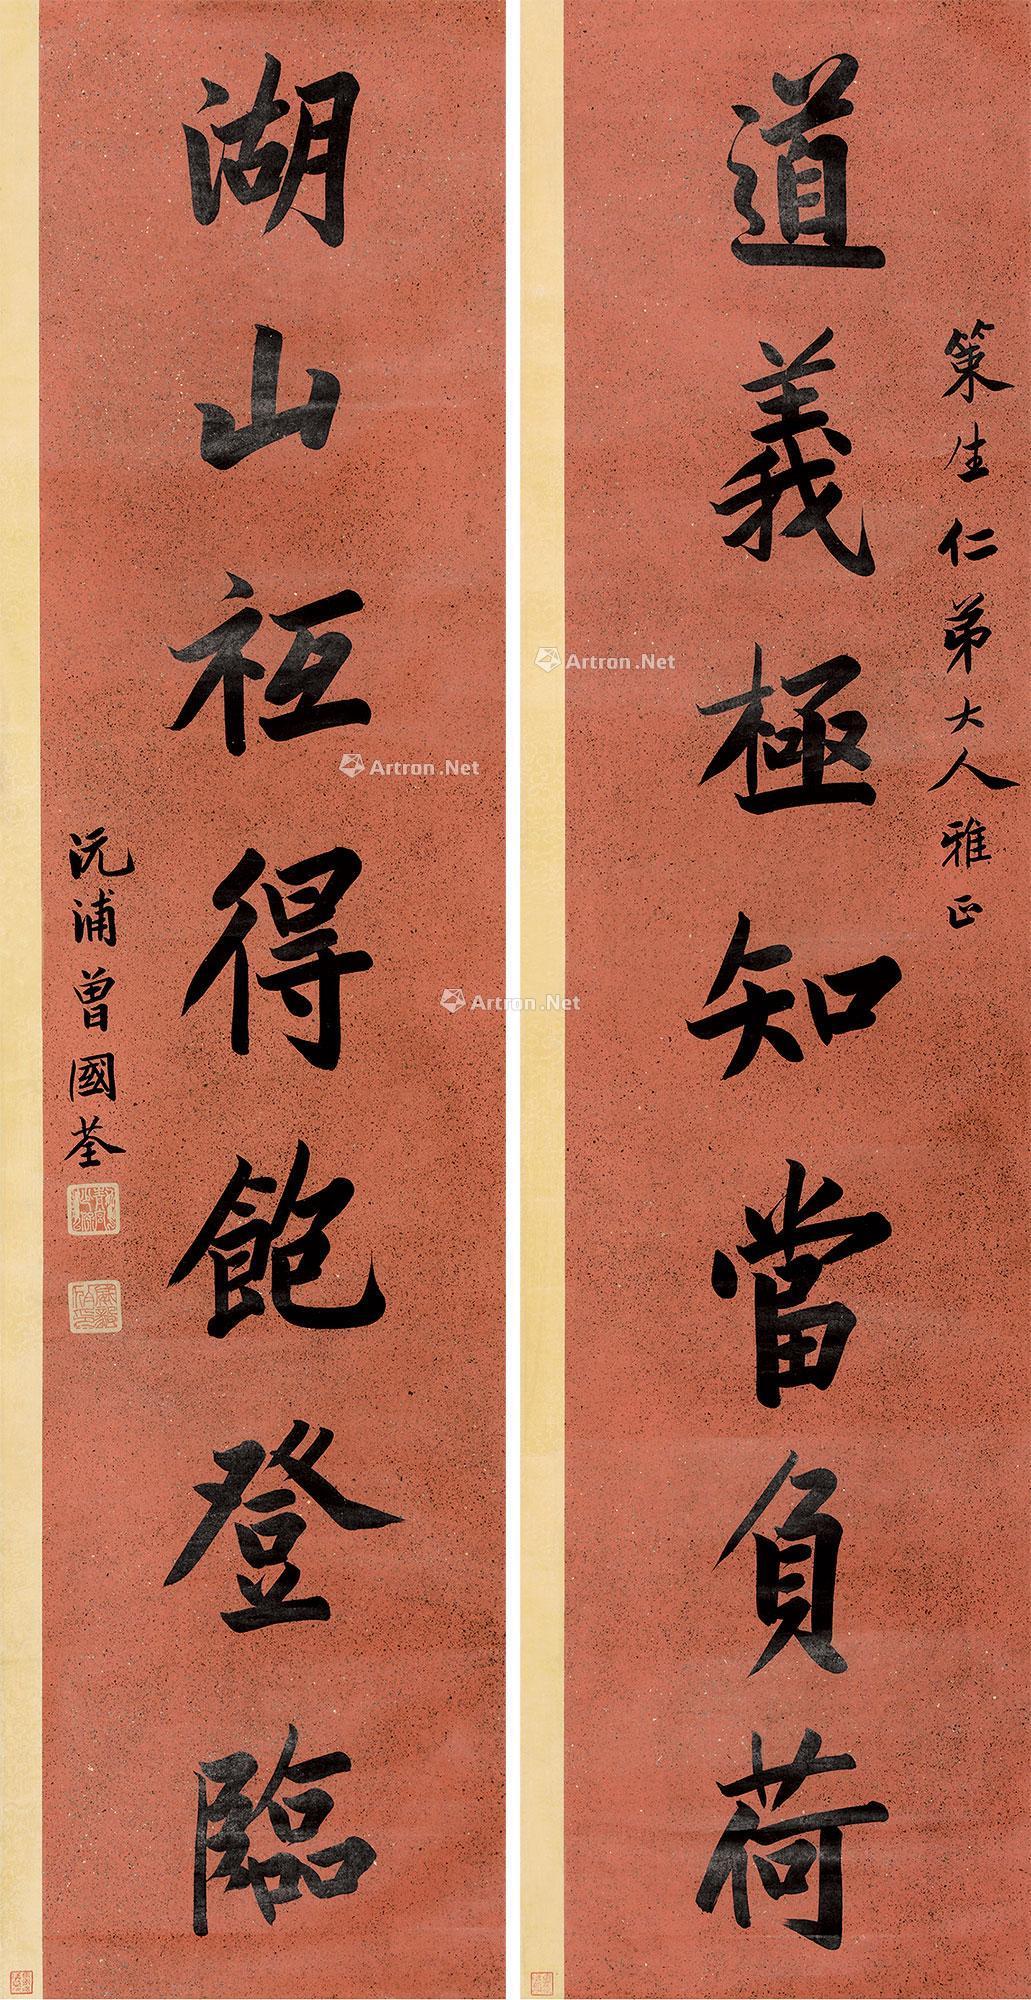 策生仁弟大人雅正
道義極知當負荷
湖山祗得飽登臨
沅浦曾國荃
Artron.Net
Artron.Net
Artron.Net